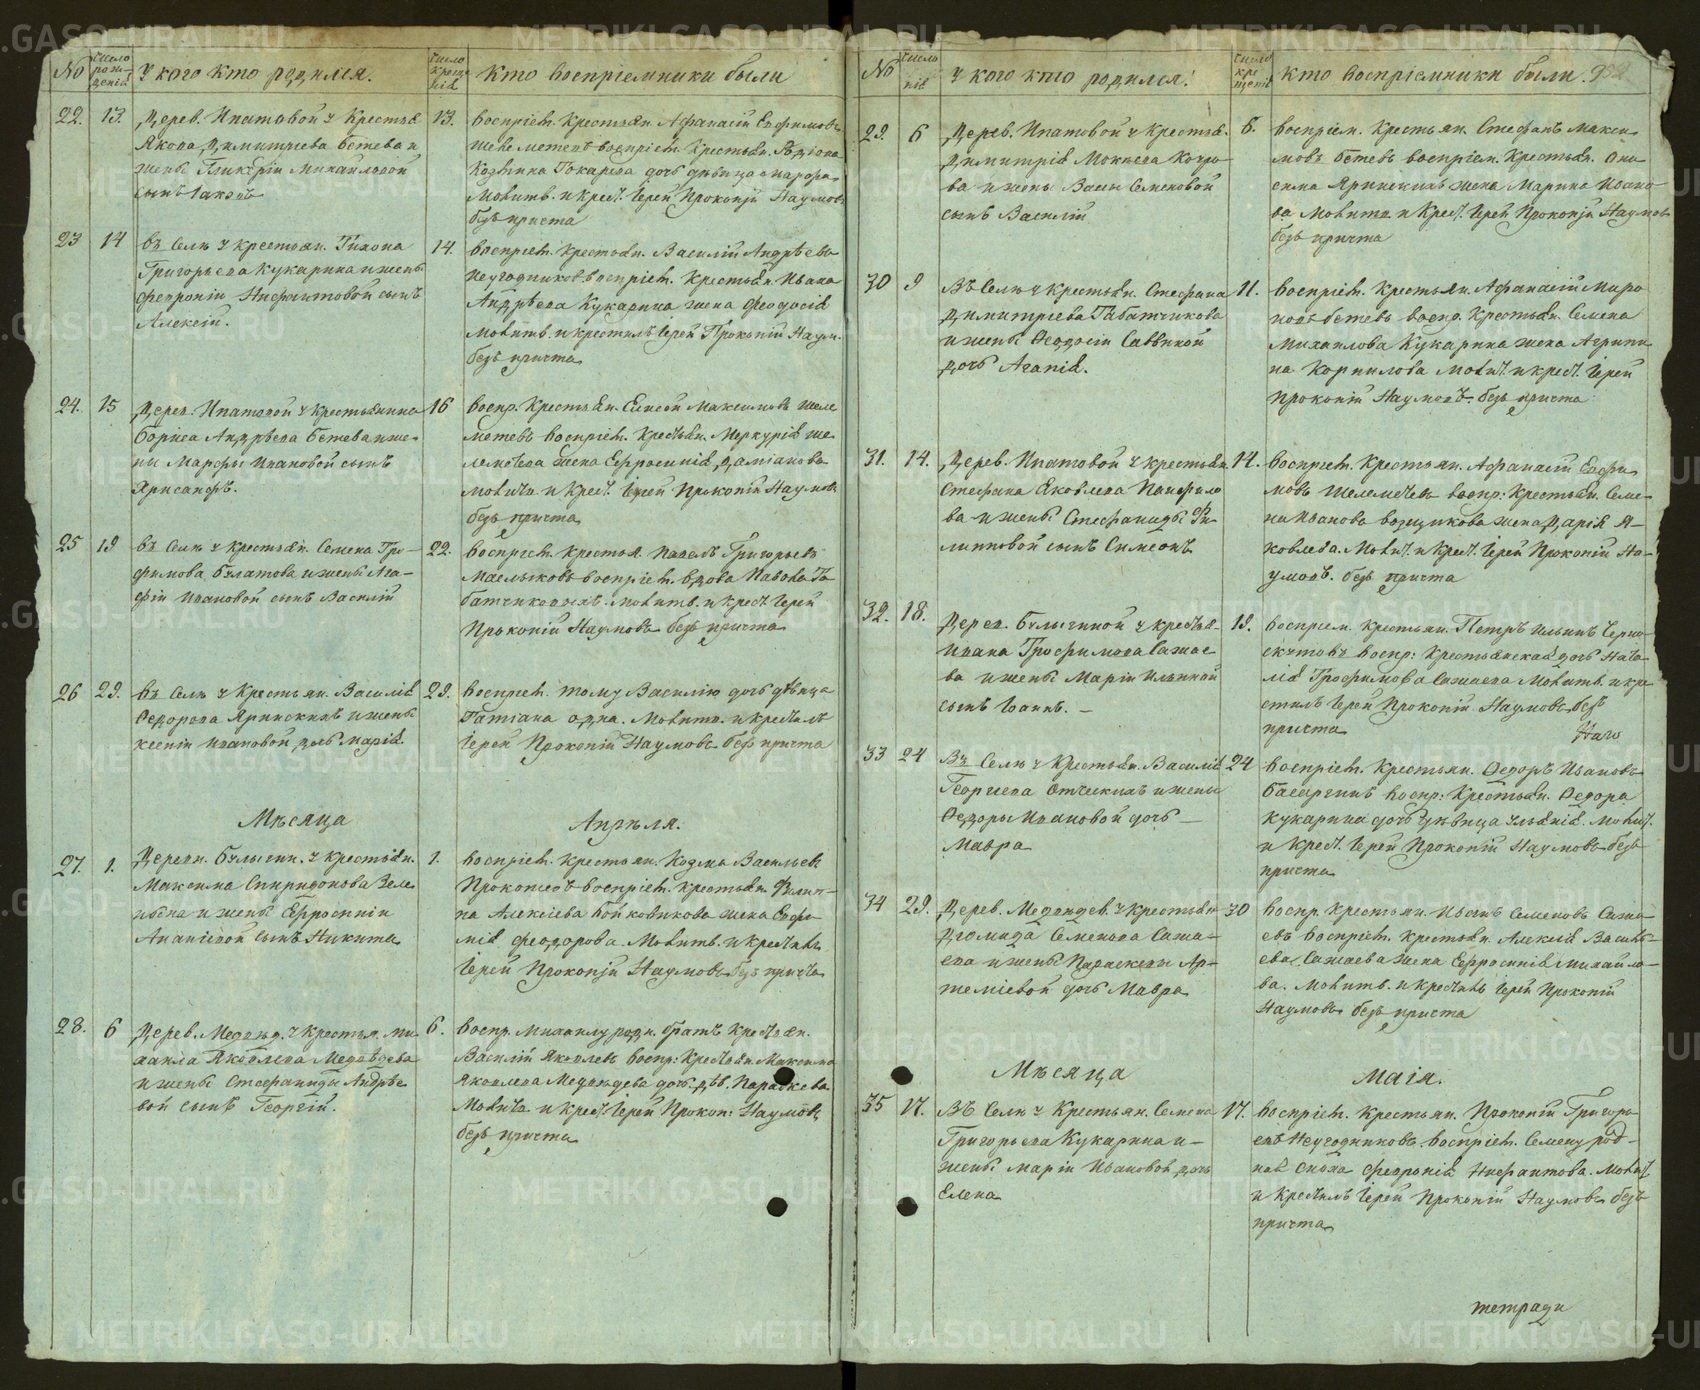 №
число рождения
У кого кто родился.
число крещенія
Кто восприемники были
22.
13.
Дерев. Ипатовой у Крестья.
Якова Димитріева Бетева и
жены Гликеріи Михайловой
сынъ Іаковъ
13.
воспріем. Крестьян. Афанасій Евфимовъ
шелеметевъ воспріем. Крестьян.
Токарева дочь дѣвица
Молитв. и крест. Іерей Прокопій Наумовъ
безъ причта
23
14
въ Селѣ у крестьян. Тихона
Григорьева Кукарина и жены
Февроніи Нифантовой сынъ
Алексій.
14.
воспріем. Крестьян. Василій Андрѣевъ
Неугодниковъ воспріем. Крестьян. Ивана
Андрѣева Кукарина жена Феодосія
Молитв. и крестилъ Іерей Прокопій Наум.
безъ причта
24.
15
Дерев. Ипатовой у крестьянина
Бориса Андрѣева Бетева и же-
ны Марфы Ивановой сынъ
Хрисанфъ.
16
воспр. Крестьян. Елисей Максимовъ шеле
метевъ воспріем. Крестьян. Меркурія ше-
леметева жена Ефросинія Даміанова
молитв. и крест. Іерей Прокопій Наумовъ
безъ причта
25
19
въ Селѣ у крестьян. Семена Тро-
фимова Булатова и жены Ага-
фіи Ивановой сынъ Василій
22.
воспріем. крестья. Павелъ Григорьевъ
Масльковъ воспріем. вдова Павла Та
батчикова. Молитв. и крест. Іерей
Прокопій Наумовъ безъ причта
26
29.
въ Селѣ у Крестьян. Василія
Федорова Яринскихъ и жены
Ксеніи Ивановой дочь Марія.
29.
воспріем. тому Василію дочь дѣвица
Татіана одна. Молитв. и крестилъ
Іерей Прокопій Наумовъ безъ причта
Мѣсяца
Апрѣля.
27.
1.
Деревн. Булыгин. у крестьян.
Максима Спиридонова Зеле
нина и жены Ефросиніи
Ананіевой сынъ Никита
1.
воспріем. Крестьян. Козма Васильевъ
Прокопьевъ воспріем. крестьян. Филип-
па Алексіева жена Евфи-
мія Феодорова Молитв. и крестилъ
Іерей Прокопій Наумовъ безъ причта
28.
6
Дерев. Медвѣд. у Крестья. Ми-
хаила Яковлева Медвѣдева
и жены Стефаниды Андрѣе
вой сынъ Георгій.
6.
воспр. Михаилу родн. братъ Крестьян.
Василій Яковлевъ воспр: Крестьян. Максима
Яковлева Медвѣдева дочь дѣв. Параскева
Молитв. и крест. Іерей Прокоп: Наумовъ
безъ причта
№
число
нія
У кого кто родился.
число крещеніе
Кто восприемники были.
29.
6
Дерев. Ипатовой у Крестья.
Димитрія Мокиева
ва и жены Васы Семеновой
сынъ Василій
6.
воспріем. Крестьян. Стефанъ Макси
мовъ Бетевъ воспріем. Крестьян. Они-
сима Яринскихъ жена Марина Ивано-
ва Молитв. и Крест. Іерей Прокопій Наумовъ
безъ причта
30
9
Въ Селѣ у крестьян. Стефана
Димитріева Табатчикова
и жены Феодосіи Саввиной
дочь Агапія.
11.
воспріем. Крестьян. Афанасій Миро
новъ Бетевъ воспр. Крестьян. Семена
Михайлова Кукарина жена Агрипи
на Корнилова Молит. и крест. Іерей
Прокопій Наумовъ безъ причта
31.
14.
Дерев. Ипатовой у крестьян.
Стефана Яковлева Панфило
ва и жены Стефаниды Фи-
липповой сынъ Симеонъ
14.
воспріем. Крестьян. Афанасій Евфи
мовъ Шелеметевъ воспр: Крестьян. Семе-
на Иванова жена Дарія Я-
ковлева. Молит. и Крест. Іерей Прокопій На-
умовъ. безъ причта
32.
18.
Дерев. Булыгиной у крестья-
Ивана Трофимова Сажае-
ва и жены Маріи Ильиной
сынъ Іоаннъ. -
19.
воспріем. Крестьян. Петръ Ильинъ Черно-
скутовъ воспр: Крестьянская дочь Ната-
лія Трофимова Сажаева Молитв. и кре-
стилъ Іерей Прокопій Наумовъ безъ
причта
Наго
33
24
Въ Селѣ у Крестьян. Василія
Георгіева и жены
Федоры Ивановой дочь
Мавра
24
воспріем. Крестьян. Федоръ Ивановъ
Басаргинъ воспр: Крестьян. Федора
Кукарина дочь дѣвица Ульянія. Молит.
и Крест. Іерей Прокопій Наумовъ безъ
причта
34
29.
Дерев. Медвѣдев. у Крестьян.
Діомида Семенова Сажа-
ева и жены Параскевы Ар-
теміевой дочь Мавра
30
воспр. Крестьян. Иванъ Семеновъ Сажа-
евъ воспріем. Крестьян. Алексія Василь-
ева Сажаева жена Ефросинія Михайло-
ва. Молитв. и крестилъ Іерей Прокопій
Наумовъ безъ причта
Мѣсяца
Маія.
35
17.
Въ Селѣ у Крестьян. Семена
Григорьева Кукарина и -
жены Маріи Ивановой дочь
Елена
17.
воспріем. Крестьян. Прокопій Григорь-
евъ Неугодниковъ воспріем. Семену род-
ная сноха Февронія Нифантова. Молит.
и крестилъ Іерей Прокопій Наумовъ безъ
причта
тетради
METRIKI.GASO-URAL.RU